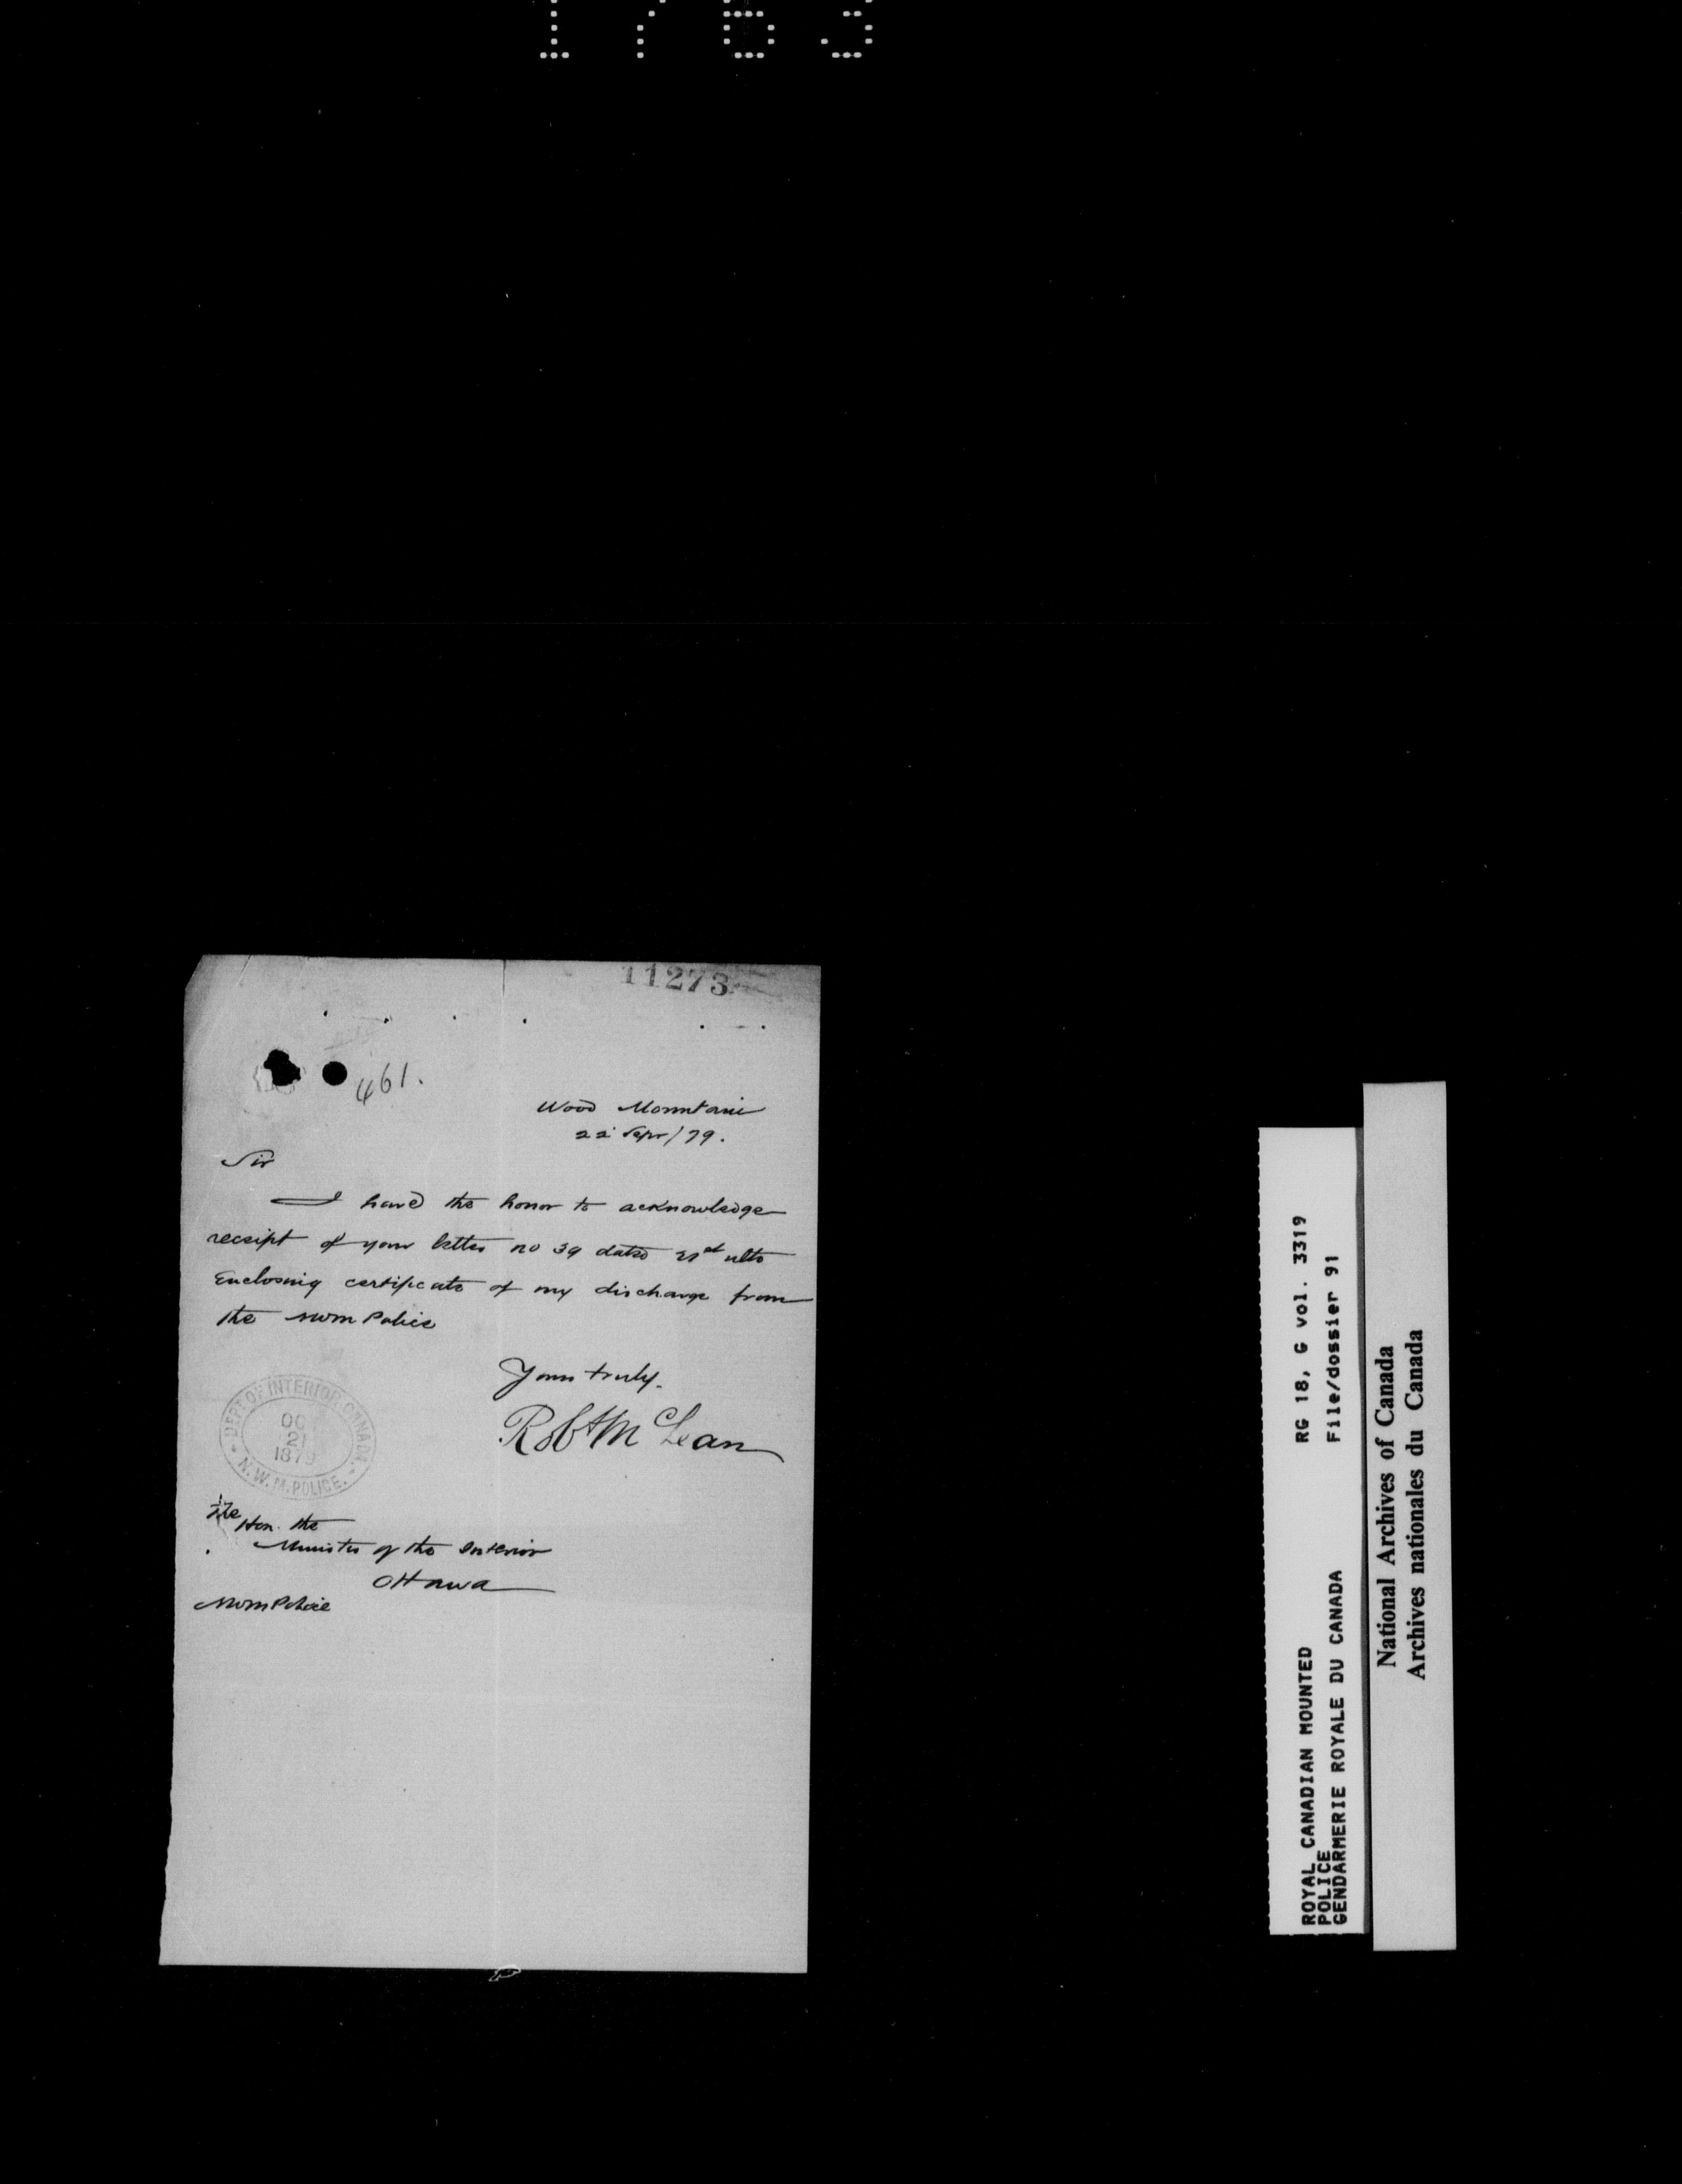 11273
461.
Wood Mountain
22 Sepr/79.
Sir
I have the honor to acknowledge
receipt of your letter no 39 dated 21st ulto
Enclosing certificate of my discharge from
the NWM Police
Yours truly.
Robt McLean
DEPT OF INTERIOR CANADA
OC
21
1879
N.W.M. POLICE.
The Hon. the
Minister of the Interior
Ottawa
NWM Police
ROYAL CANADIAN MOUNTED RG 18, G vol. 3319
POLICE File/dossier 91
GENDARMERIE ROYALE DU CANADA
National Archives of Canada
Archives nationales du Canada